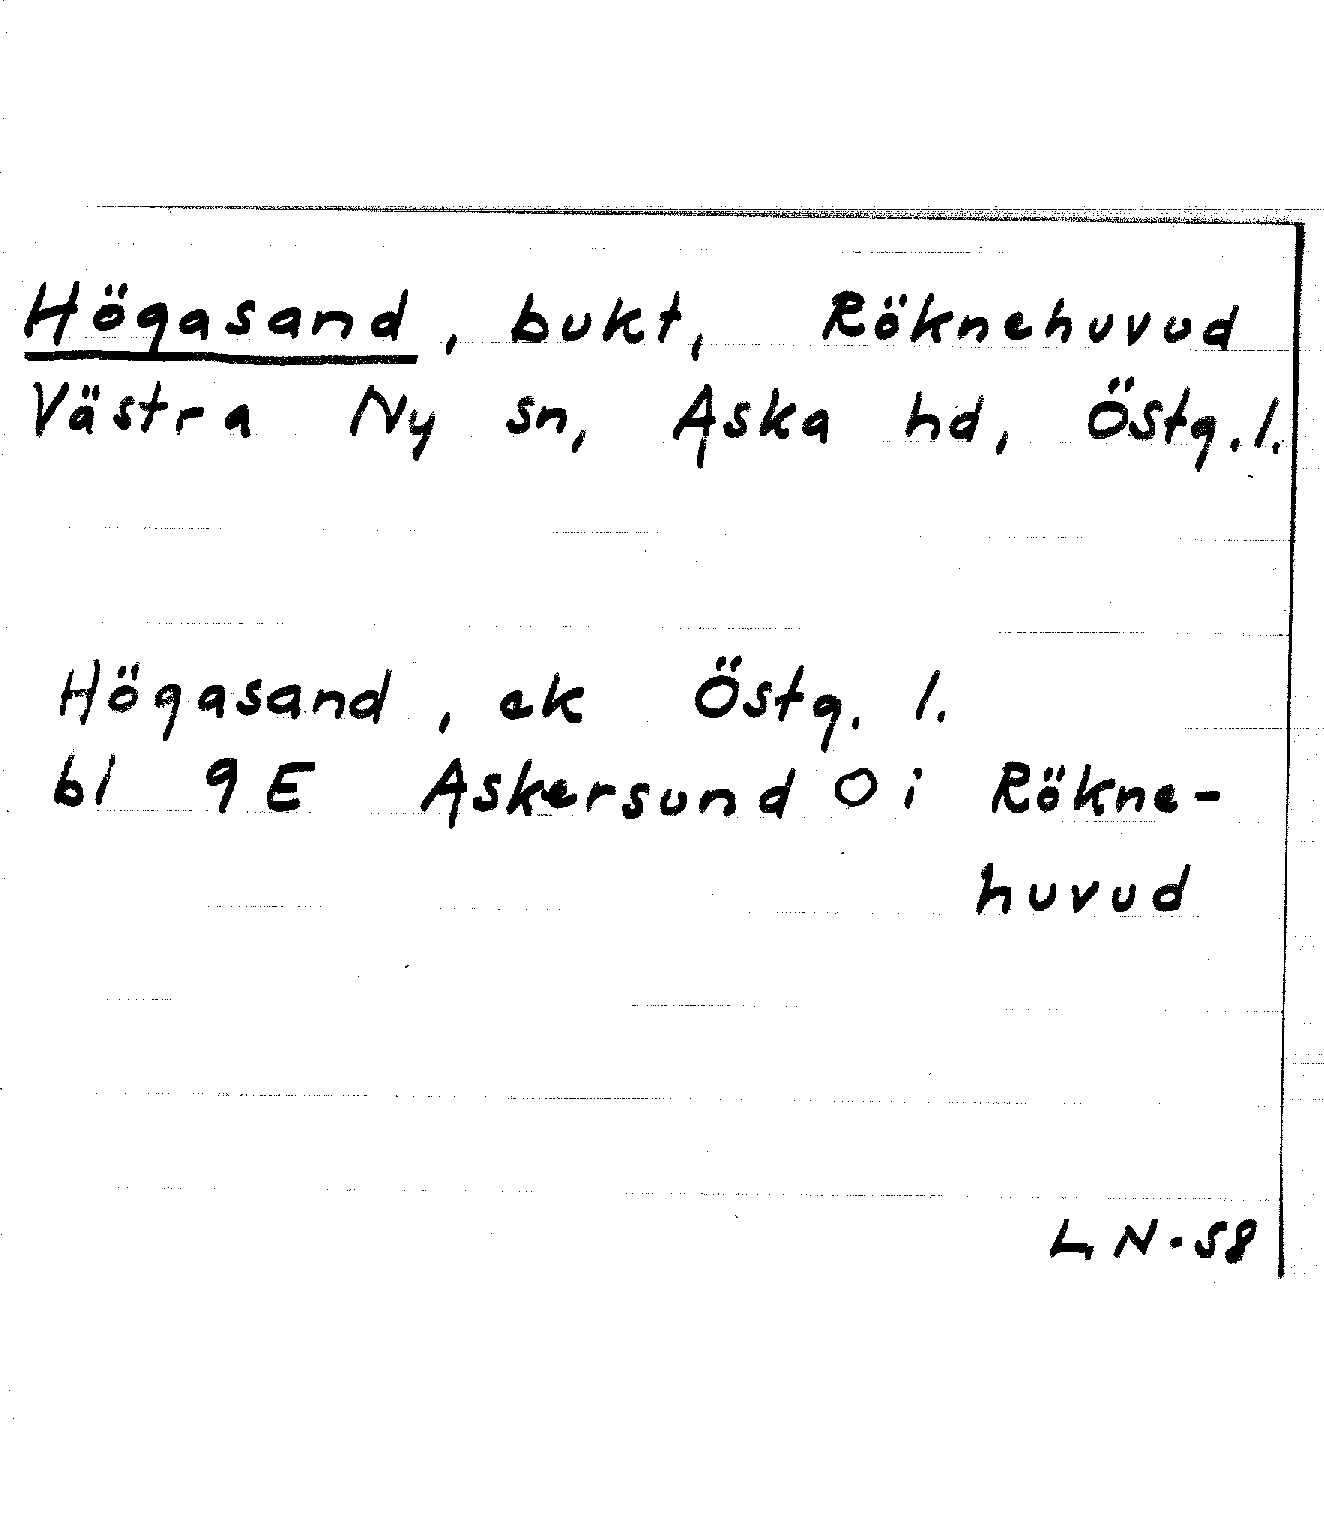 Högasand, bukt, Röknehuvud
Västra Ny sn, Aska hd, Östg. l.
Högasand, ek Östg. l.
bl 9E Askersund O i Rökne-
huvud
LN-58